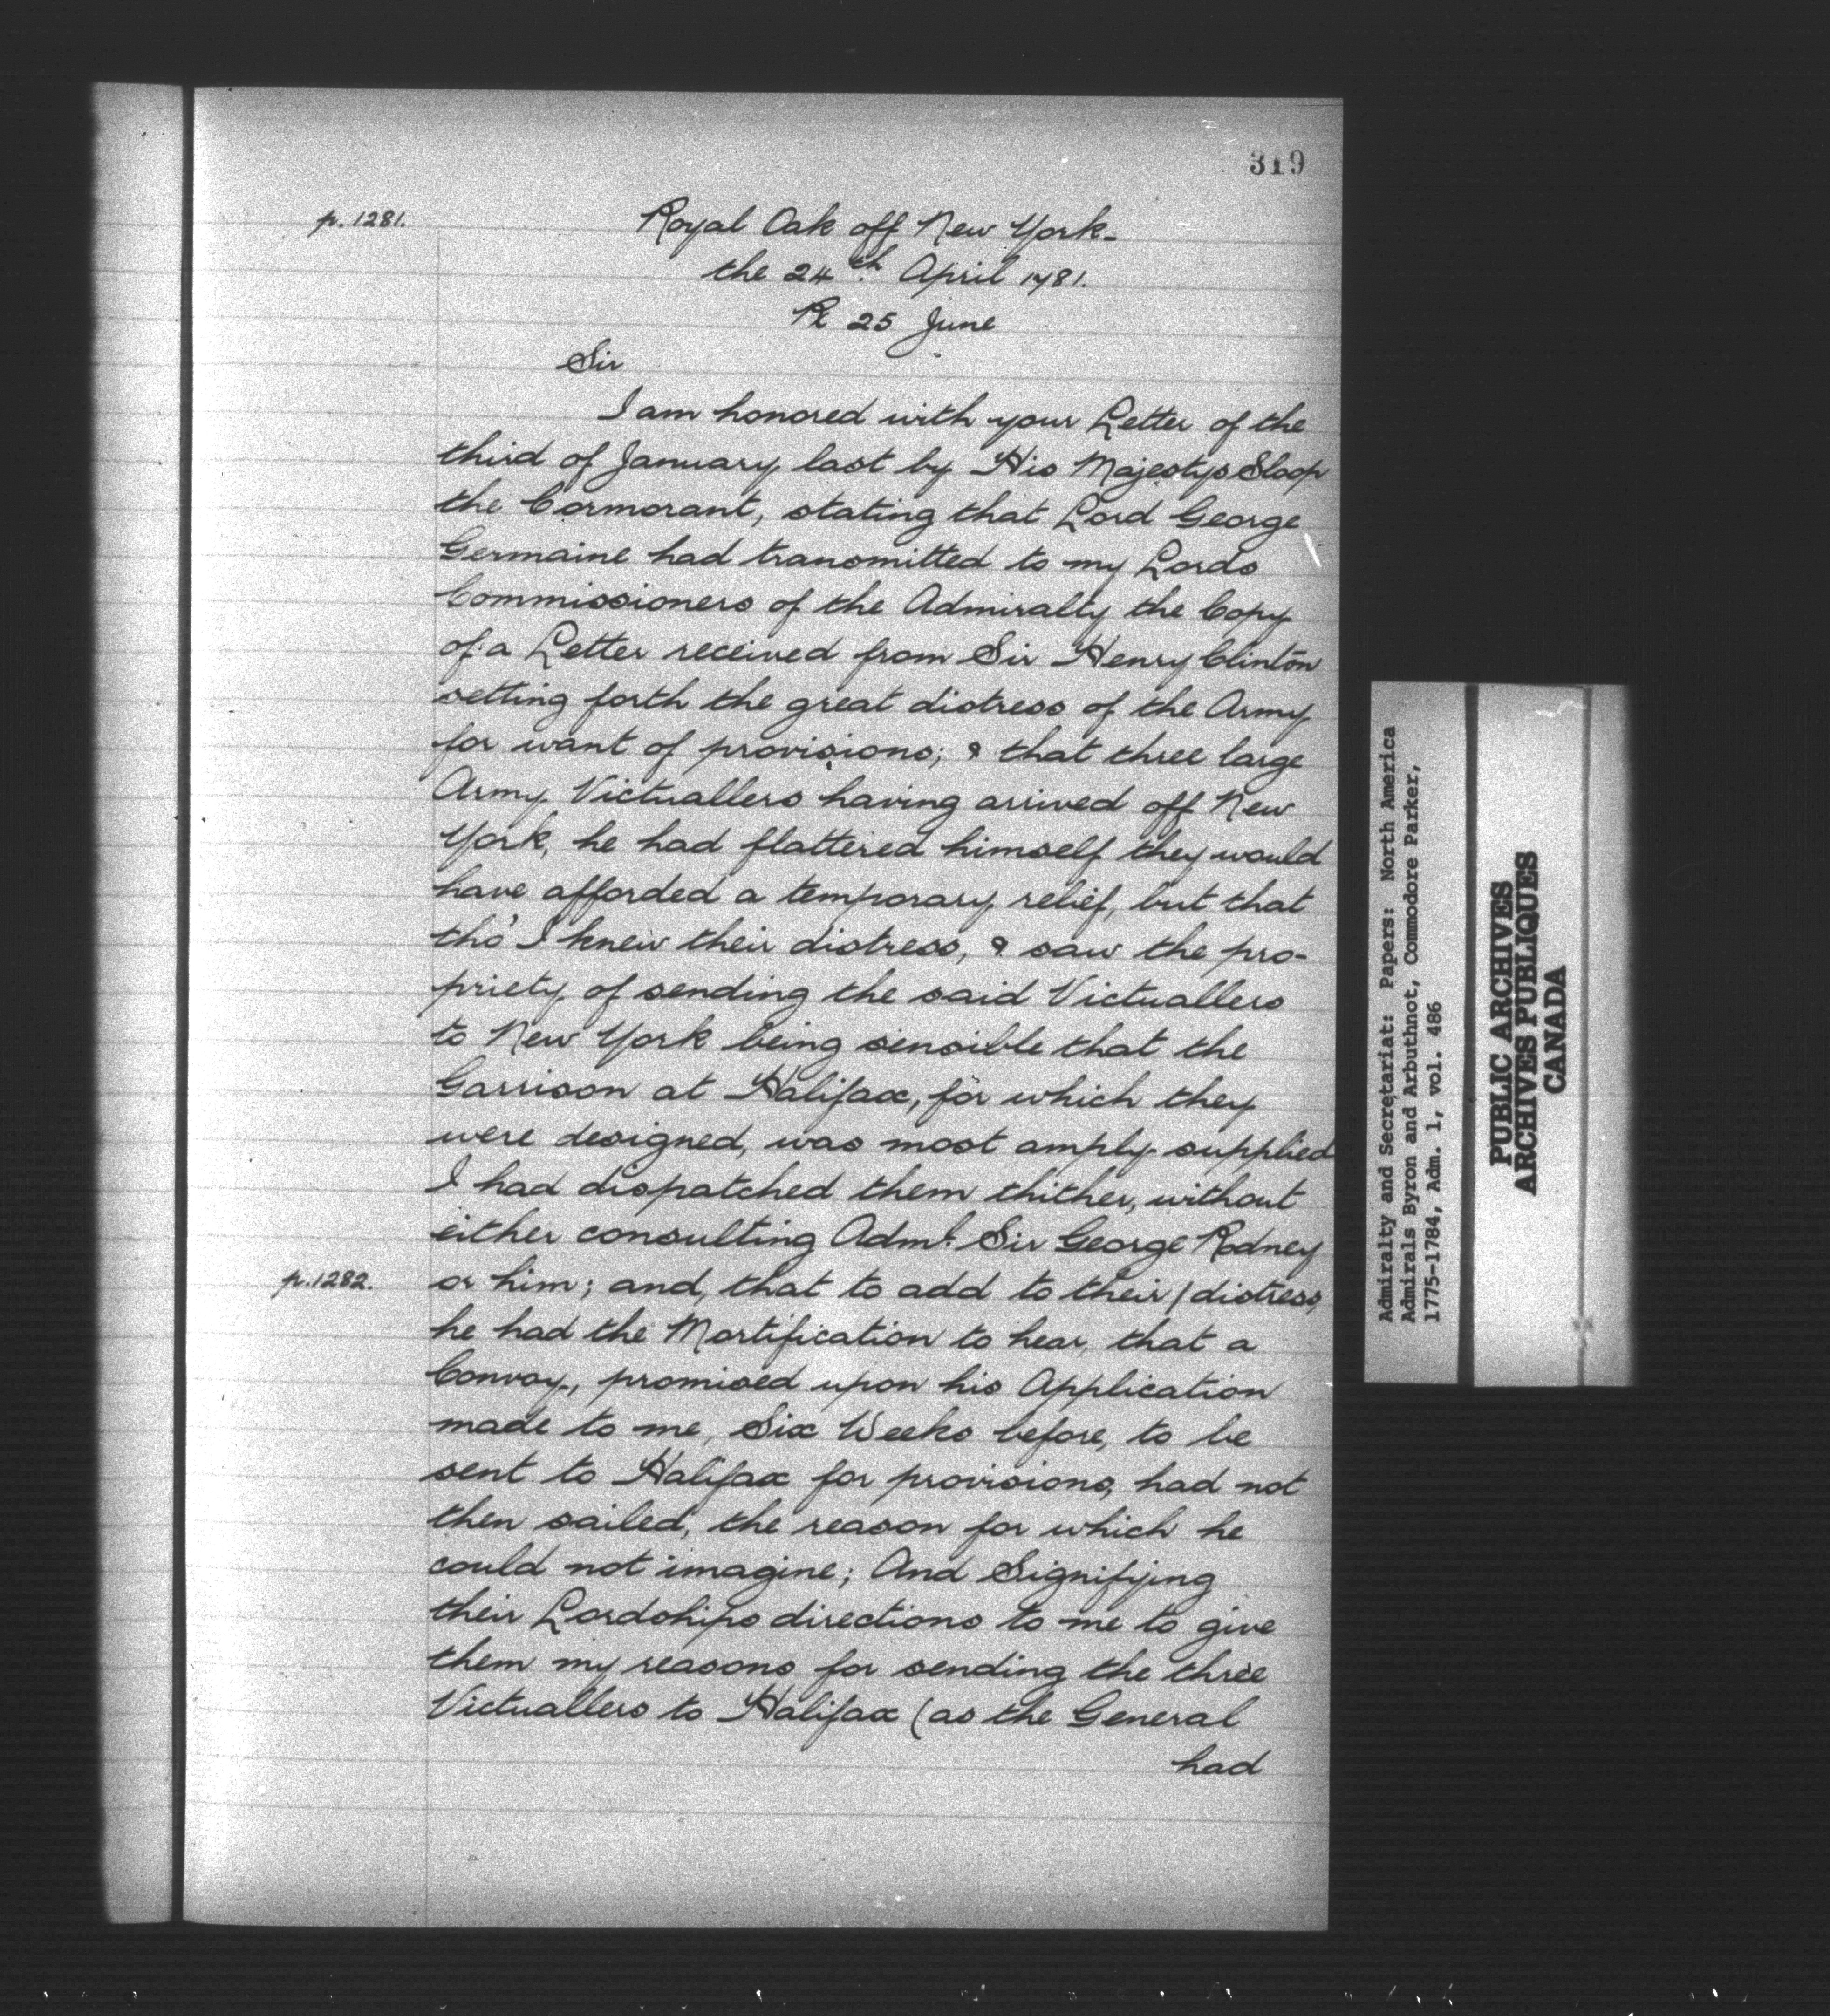 319
p. 1281.
Royal Oak off New York-
the 24th. April 1781.
Rx 25 June
Sir
I am honored with your Letter of the
third of January last by His Majestys Sloop
the Cormorant, stating that Lord George
Germaine had transmitted to my Lords
Commissioners of the Admiralty the Copy
of a Letter received from Sir Henry Clinton
setting forth the great distress of the Army
for want of provisions; & that three large
Army Victuallers having arrived off New
York, he had flattered himself they would
have afforded a temporary relief, but that
tho' I knew their distress, & saw the pro-
priety of sending the said Victuallers
to New York being sensible that the
Garrison at Halifax, for which they
were designed, was most amply supplied
I had dispatched them thither, without
either consulting Adml. Sir George Rodney
p. 1282.
or him; and, that to add to their / distress,
he had the Mortification to hear, that a
Convoy, promised upon his Application
made to me, Six Weeks before, to be
sent to Halifax for provisions, had not
then sailed, the reason for which he
could not imagine; And Signifying
their Lordships directions to me to give
them my reasons for sending the three
Victuallers to Halifax (as the General
had
Admiralty and Secretariat: Papers: North America
Admirals Byron and Arbuthnot, Commodore Parker,
1775-1784, Adm. 1, vol. 486
PUBLIC ARCHIVES
ARCHIVES PUBLIQUES
CANADA